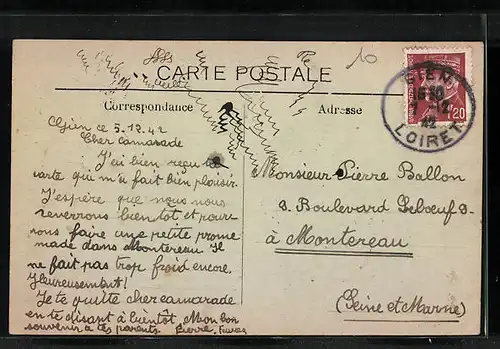 10
CARTE POSTALE
Correspondance
Adresse
GIEN
12
42
LOIRET
1F20
Gien ce 5.12.42
Cher camarade
J'ai bien reçu ta
carte qui m'a fait bien plaisir.
J'espère que nous nous
reverrons bientôt et pour-
rons faire une petite prome
nade dans Montereau Il
ne fait pas trop froid encore.
Heureusement!
Je te quitte cher camarade
en te disant à bientôt. Mon bon
souvenir à tes parents. Pierre.
Monsieur Pierre Ballon
8. Boulevard Leboeuf 8.
à Montereau
(Seine et Marne)